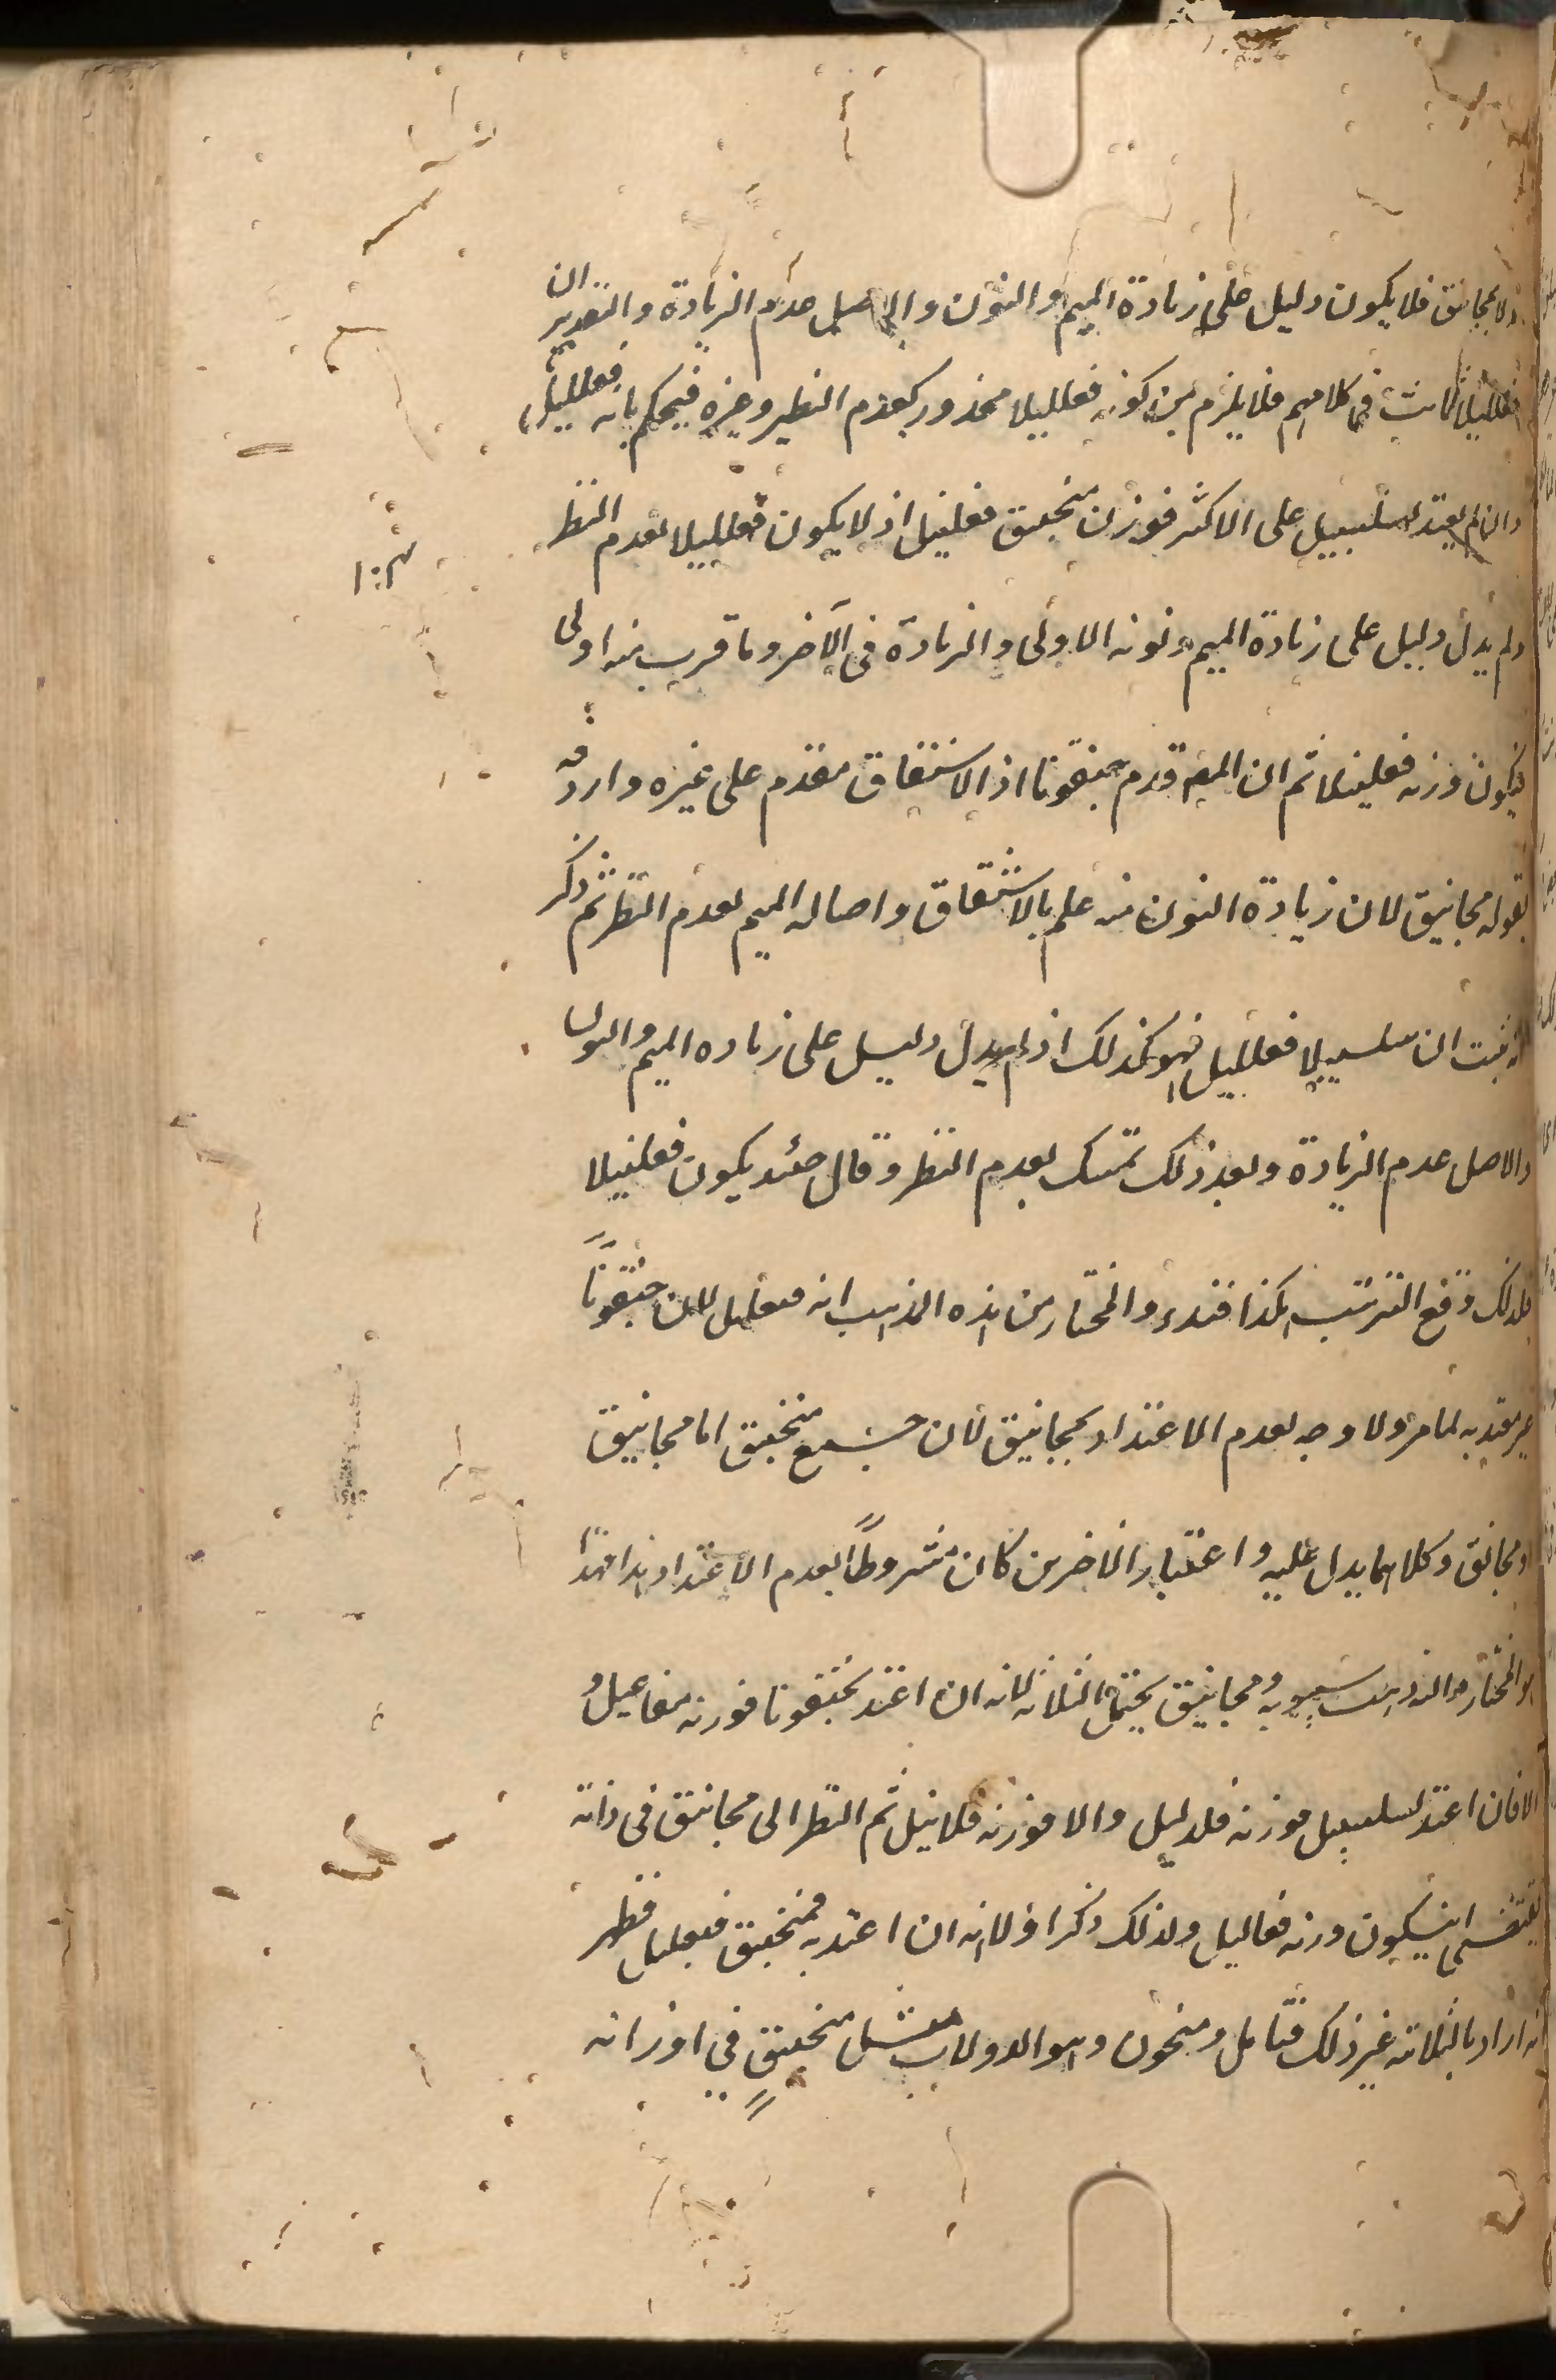 ولا بمجانيق فلا يكون دليل على زيادة الميم والنون والاصل عدم الزيادة والتقدير ان
فعلليلا ثابت في كلامهم فلا يلزم من كونه فعلليلا محذور كعدم النظير وغيره فيحكم بانه فعلليل
وان لم يعتد بسلسبيل على الاكثر فوزن منجنيق فعلنيل اذ لا يكون فعلليلا لعدم النظير
ولم يدل دليل على زيادة الميم ونونه الاولى والزيادة في الآخر وما قرب منه اولى
فيكون وزنه فعلنيلا ثم ان المص قدم جنقونا اذ الاشتقاق مقدم على غيره واردفه
بقوله مجانيق لان زيادة النون منه علم بالاشتقاق واصالة الميم لعدم النظير ثم ذكر
انه ثبت ان سلسبيلا فعلليل فهو كذلك اذ لم يدل دليل على زياده الميم والنون
والاصل عدم الزيادة وبعد ذلك تمسك بعدم النظير وقال حينئذ يكون فعلنيلا
فلذلك وقع الترتيب هكذا فتدبر والمختار من هذه المذاهب انه فنعليل لان جنقونا
غير معتد به لما مر ولا وجه لعدم الاعتداد بمجانيق لان جمع منجنيق اما مجانيق
او مجانق وكلاهما يدل عليه واعتبار الاخرين كان مشروطاً بعدم الاعتداد بهذا فهذا
هو المختار والمذهب سيبويه ومجانيق يحتمل الثلاثة لانه ان اعتد بجنقونا فوزنه مفاعيل و
الا فان اعتد بسلسبيل فوزنه فلاليل والا فوزنه فلانيل ثم النظر الى مجانيق في ذاته
يقتضي ان يكون وزنه فعاليل ولذلك ذكر اولا انه ان اعتد به فمنجنيق فنعليل فظهر
انه اراد بالثلاثة غير ذلك فتأمل ومنجنون وهو الدولاب مثل منجنيق في اوزانه